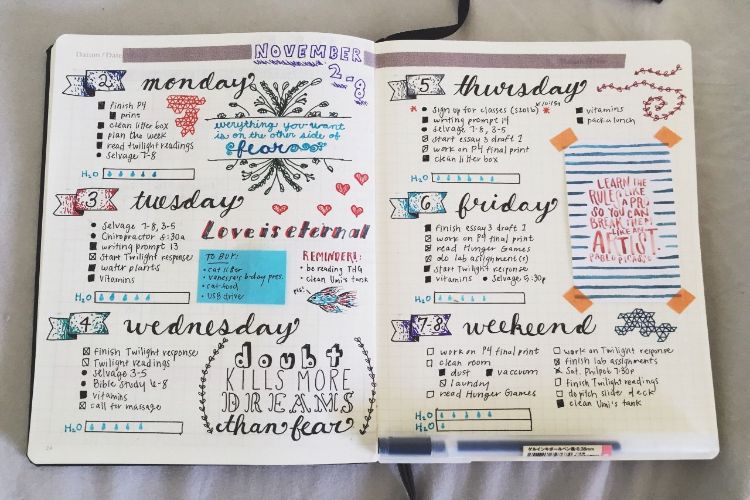 Datum / Date
NOVEMBER
2-8
2 monday
finish P4
print
clean litter box
plan the week
read twilight readings
selvage 7-8
H₂O
everything you want
is on the other side of
fear
3 tuesday
selvage 7-8, 3-5
Chiropractor 8:30a
writing prompt 13
start Twilight response
water plants
vitamins
H₂O
Love is eternal
TO BUY:
cat litter
vanessa's b-day pres.
cat food
USB drive
REMINDER!:
be reading THG
clean Umi's tank
pls!
4 wednesday
finish Twilight response
Twilight readings
selvage 3-5
Bible Study 6-8
vitamins
call for massage
H₂O
doubt
KILLS MORE
DREAMS
than fear
24
5 thursday
sign up for classes (s2016)
writing prompt 14
selvage 7-8, 3-5
start essay 3 draft 1
work on P4 final print
clean litter box
vitamins
pack lunch
H₂O
LEARN THE
RULES LIKE
A PRO
SO YOU CAN
BREAK THEM
LIKE AN
ARTIST.
PABLO PICASSO
6 friday
finish essay 3 draft 1
work on P4 final print
read Hunger Games
do lab assignment(s)
start Twilight response
vitamins
selvage 5:30p
H₂O
7-8 weekend
work on P4 final print
clean room
dust
vacuum
laundry
read Hunger Games
work on Twilight response
finish lab assignments
Sat. Philpob 7:30p
finish Twilight readings
do pitch slider deck
clean Umi's tank
H₂O
H₂O
ゲルインキボールペン 0.38mm